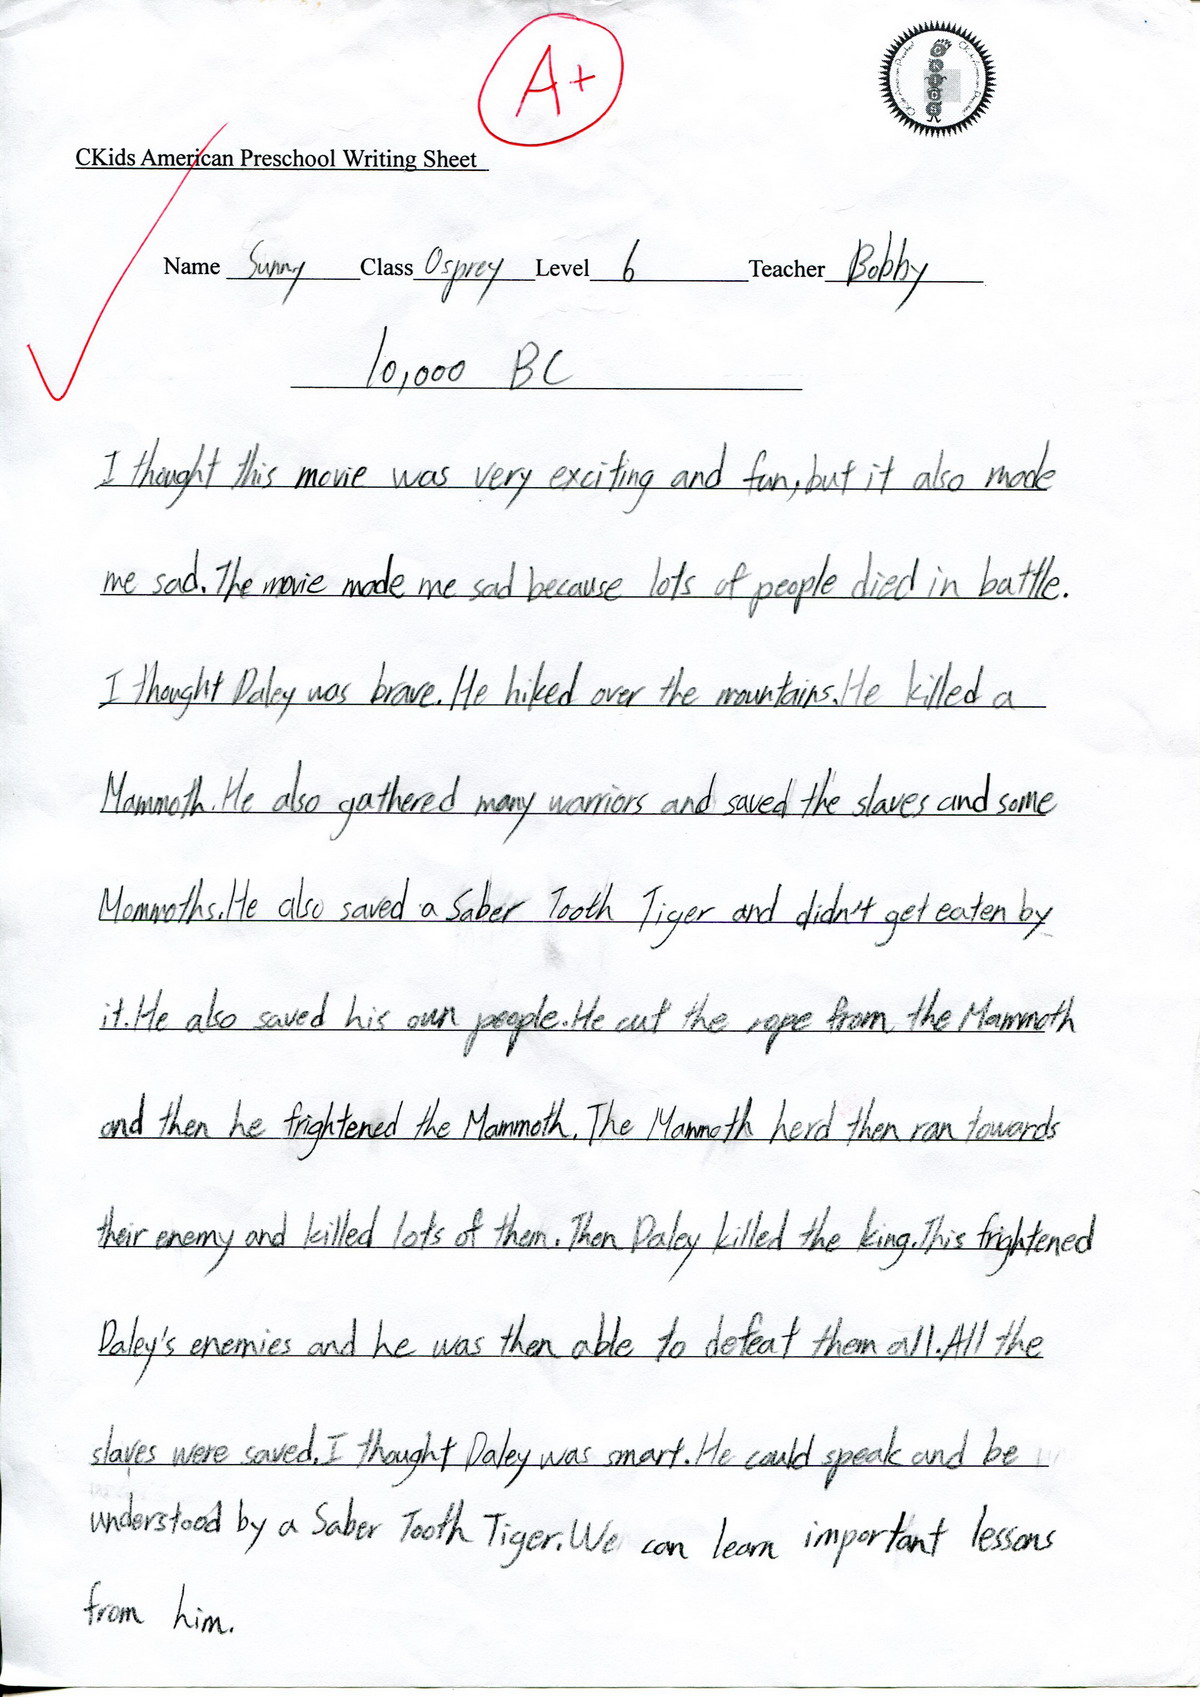 A+
CKids American Preschool Writing Sheet
Name Sunny Class Osprey Level 6 Teacher Bobby
10,000 BC
I thought this movie was very exciting and fun, but it also made
me sad. The movie made me sad because lots of people died in battle.
I thought Daley was brave. He hiked over the mountains. He killed a
Mammoth. He also gathered many warriors and saved the slaves and some
Mommoths. He also saved a Saber Tooth Tiger and didn't get eaten by
it. He also saved his own people. He cut the rope from the Mammoth
and then he frightened the Mammoth. The Mammoth herd then ran towards
their enemy and killed lots of them. Then Daley killed the king. This frightened
Daley's enemies and he was then able to defeat them all. All the
slaves were saved. I thought Daley was smart. He could speak and be
understood by a Saber Tooth Tiger. We can learn important lessons
from him.